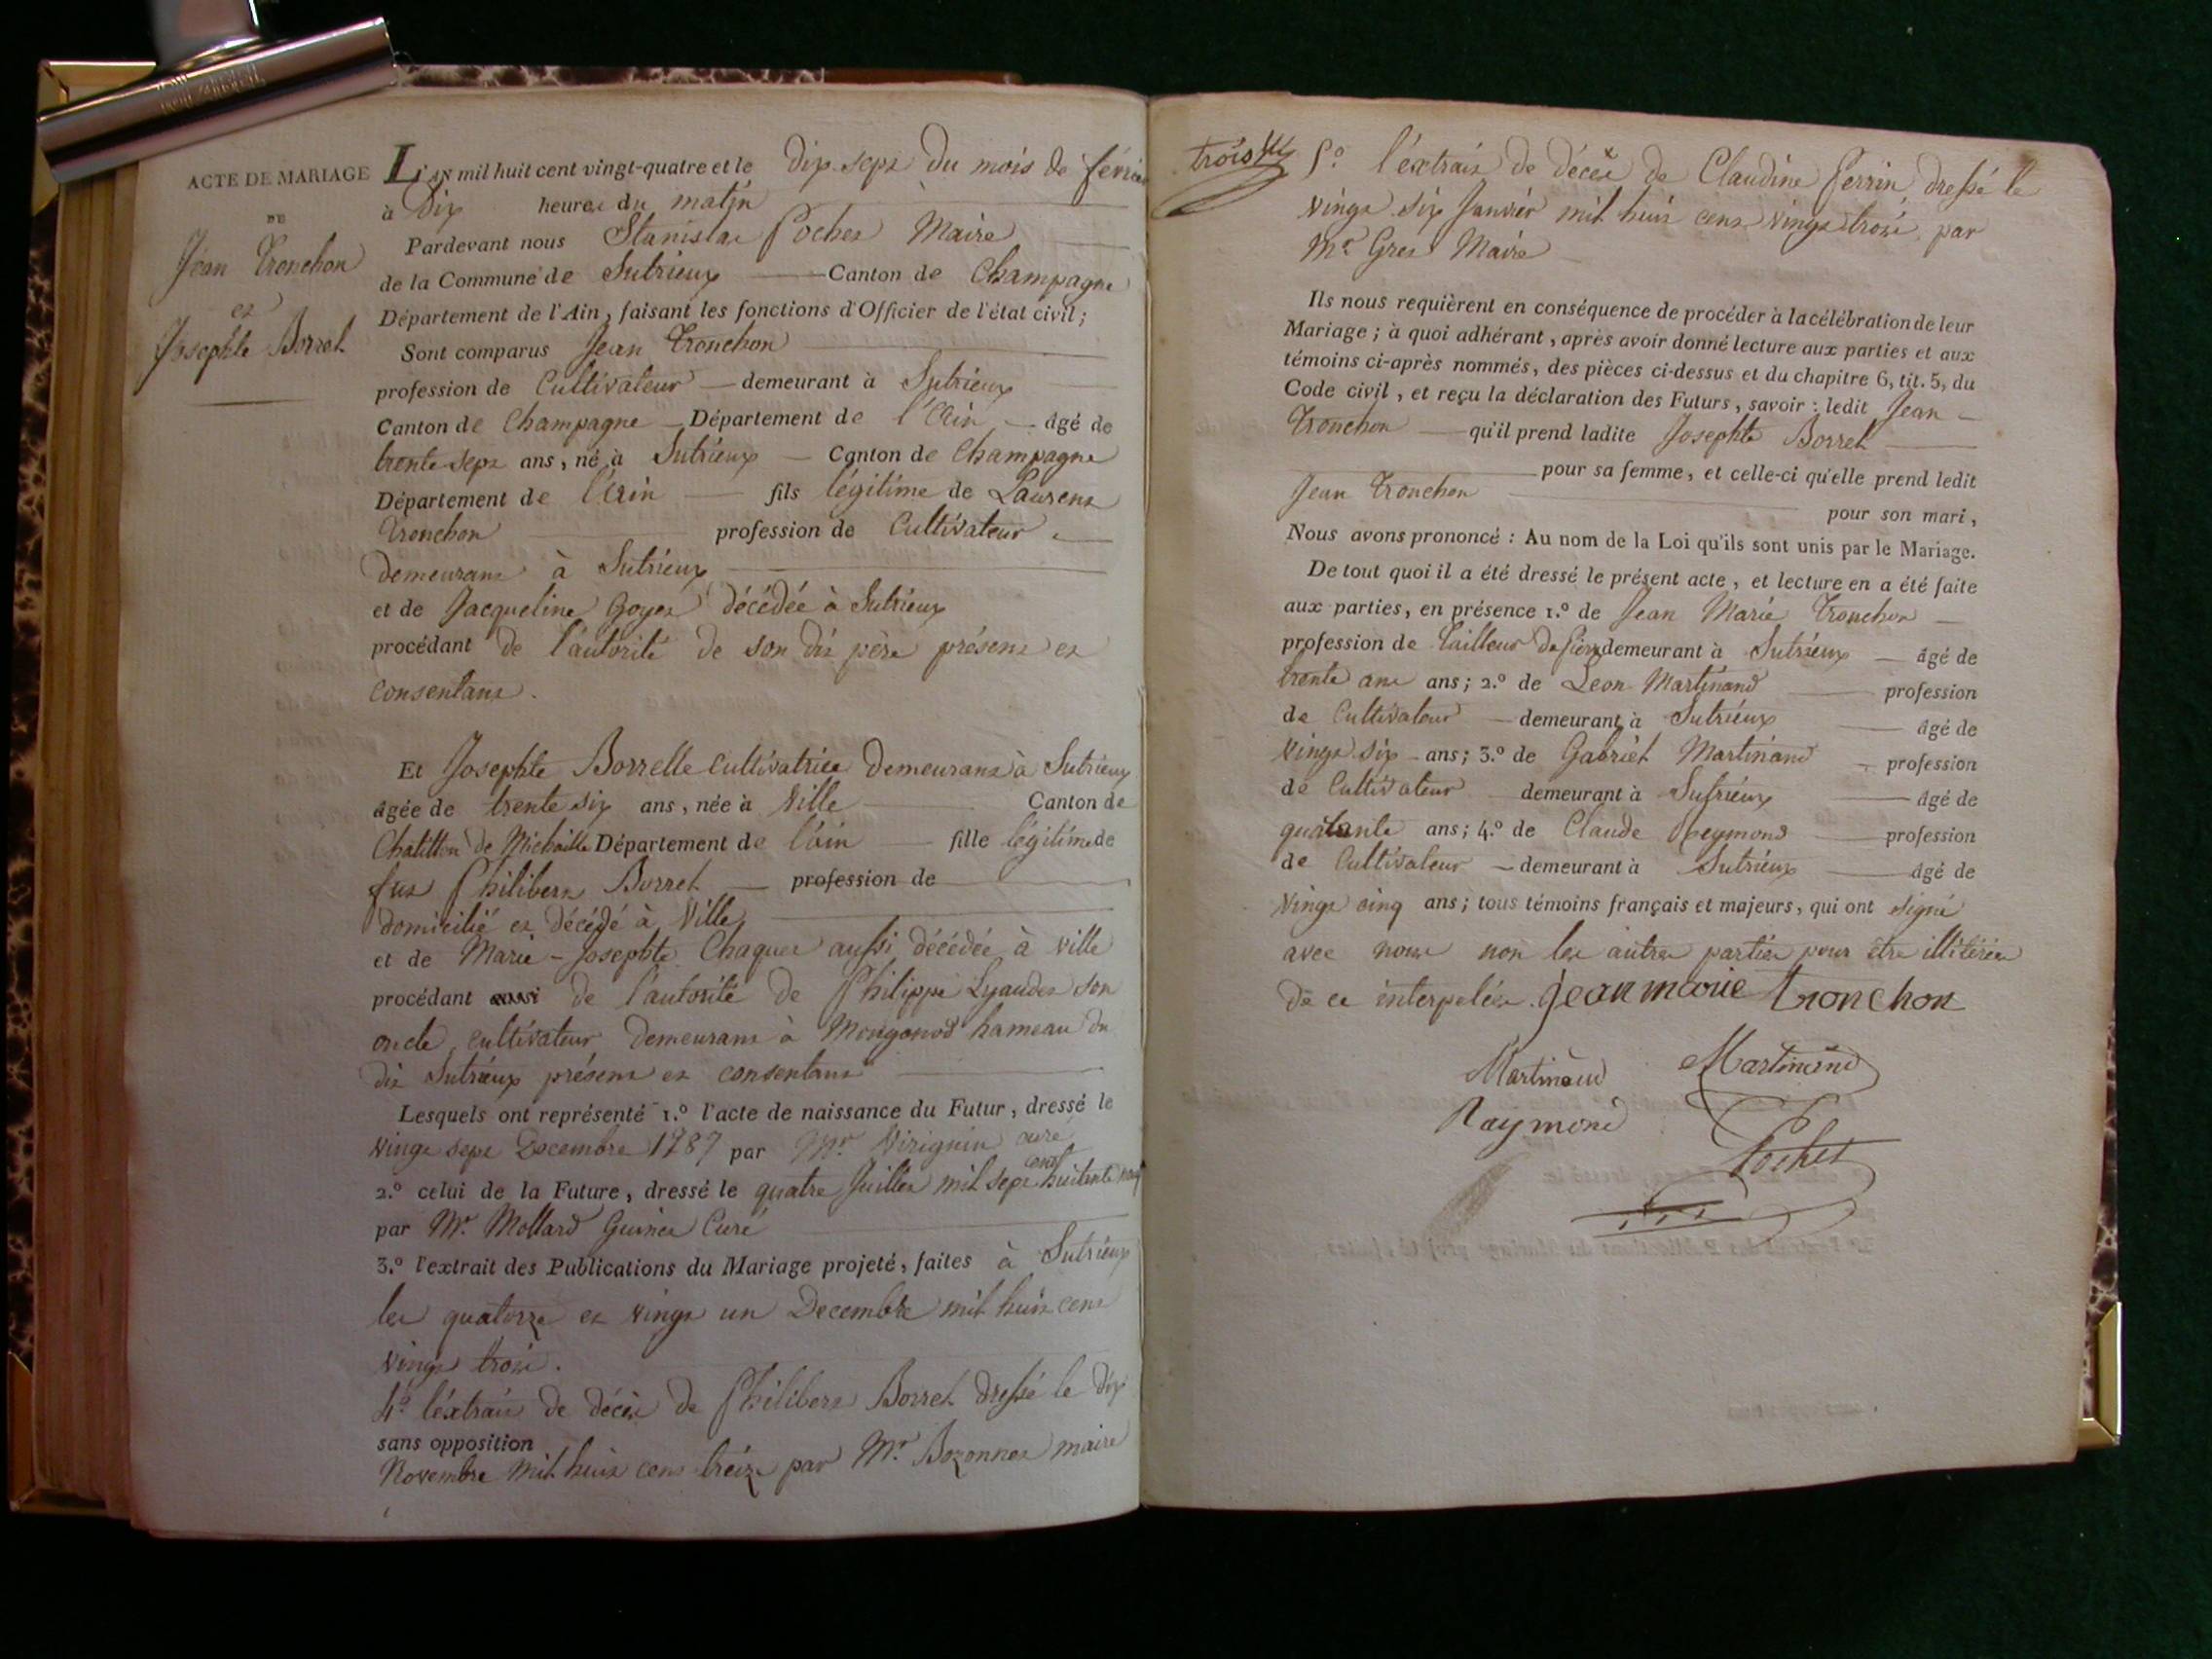 ACTE DE MARIAGE
DE
Jean Tronchon
et
Josephte Borret
L'AN mil huit cent vingt-quatre et le dix sept du mois de février
à Dix heures du matin
Pardevant nous Stanislas Pochet Maire
de la Commune de Sutrieux Canton de Champagne
Département de l'Ain, faisant les fonctions d'Officier de l'état civil;
Sont comparus Jean Tronchon
profession de Cultivateur demeurant à Sutrieux
Canton de Champagne Département de l'Ain âgé de
trente sept ans, né à Sutrieux Canton de Champagne
Département de l'Ain fils légitime de Laurent
Tronchon profession de Cultivateur
demeurant à Sutrieux
et de Jacqueline Goyet décédée à Sutrieux
procédant de l'autorité de son dit père présent et
consentant.
Et Josephte Borrelle Cultivatrice Demeurant à Sutrieux
âgée de trente six ans, née à Ville Canton de
Chatillon de Michaille Département de l'ain fille légitime de
fut Philibert Borret profession de
domicilié et décédé à Ville
et de Marie-Josephte Chaquet aussi décédée à ville
procédant de l'autorité de Philippe Lyaudet son
oncle cultivateur demeurant à Mongonod hameau du
dit Sutrieux présent et consentant
Lesquels ont représenté 1.º l'acte de naissance du Futur, dressé le
vingt sept Decembre 1787 par Mr. Virignin curé
2.º celui de la Future, dressé le quatre Juillet mil sept cent huitante
par Mr. Mollard Guinet Curé
3.º l'extrait des Publications du Mariage projeté, faites à Sutrieux
les quatorze et vingt un Decembre mil huit cent
vingt trois.
4º l'éxtrait de décès de Philibert Borret dressé le dix
sans opposition
Novembre mil huit cent treize par Mr. Bozonnet maire
trois
5º l'éxtrait de décès de Claudine Perrin, dressé le
vingt six Janvier mil huit cent vingt trois, par
Mr Gret Maire
Ils nous requièrent en conséquence de procéder à la célébration de leur
Mariage; à quoi adhérant, après avoir donné lecture aux parties et aux
témoins ci-après nommés, des pièces ci-dessus et du chapitre 6, tit. 5, du
Code civil, et reçu la déclaration des Futurs, savoir: ledit Jean
Tronchon qu'il prend ladite Josephte Borret
pour sa femme, et celle-ci qu'elle prend ledit
Jean Tronchon
pour son mari,
Nous avons prononcé: Au nom de la Loi qu'ils sont unis par le Mariage.
De tout quoi il a été dressé le présent acte, et lecture en a été faite
aux parties, en présence 1.º de Jean Marie Tronchon
profession de Tailleur de Pierre demeurant à Sutrieux âgé de
trente ans ans; 2.º de Leon Martinand profession
de Cultivateur demeurant à Sutrieux âgé de
vingt six ans; 3.º de Gabriel Martinand profession
de Cultivateur demeurant à Sutrieux âgé de
quarante ans; 4.º de Claude Reymond profession
de Cultivateur demeurant à Sutrieux âgé de
vingt cinq ans; tous témoins français et majeurs, qui ont signé
avec nous non les autres parties pour être illitérées
de ce interpelées. jean marie tronchon
Martinand Martinand
Raymond
Pochet